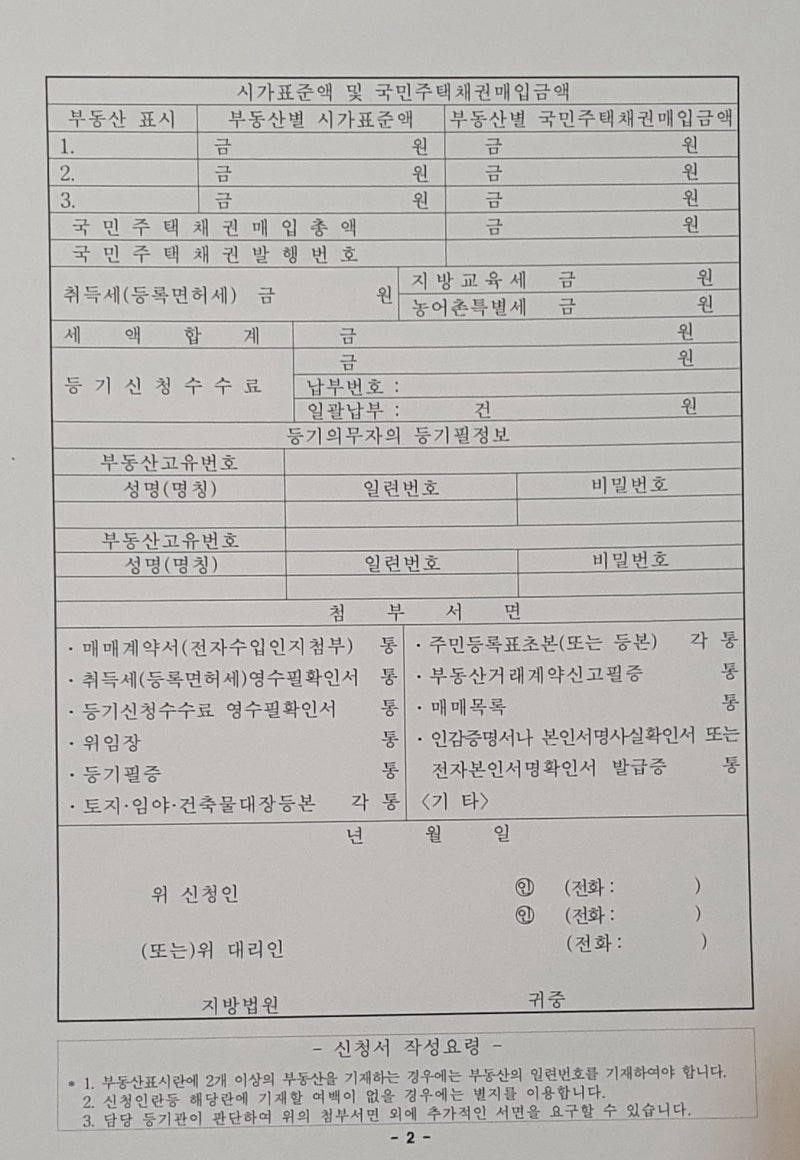 시가표준액 및 국민주택채권매입금액
부동산 표시 부동산별 시가표준액 부동산별 국민주택채권매입금액
1. 금 원 금 원
2. 금 원 금 원
3. 금 원 금 원
국 민 주 택 채 권 매 입 총 액 금 원
국 민 주 택 채 권 발 행 번 호
취득세(등록면허세) 금 원
지 방 교 육 세 금 원
농어촌특별세 금 원
세 액 합 계 금 원
등 기 신 청 수 수 료
금 원
납부번호 :
일괄납부 : 건 원
등기의무자의 등기필정보
부동산고유번호
성명(명칭) 일련번호 비밀번호
부동산고유번호
성명(명칭) 일련번호 비밀번호
첨 부 서 면
· 매매계약서(전자수입인지첨부) 통
· 취득세(등록면허세)영수필확인서 통
· 등기신청수수료 영수필확인서 통
· 위임장 통
· 등기필증 통
· 토지·임야·건축물대장등본 각 통
· 주민등록표초본(또는 등본) 각 통
· 부동산거래계약신고필증 통
· 매매목록 통
· 인감증명서나 본인서명사실확인서 또는
전자본인서명확인서 발급증 통
〈기 타〉
년 월 일
위 신청인 ㊞ (전화 : )
㊞ (전화 : )
(또는)위 대리인 (전화 : )
지방법원 귀중
- 신청서 작성요령 -
* 1. 부동산표시란에 2개 이상의 부동산을 기재하는 경우에는 부동산의 일련번호를 기재하여야 합니다.
2. 신청인란등 해당란에 기재할 여백이 없을 경우에는 별지를 이용합니다.
3. 담당 등기관이 판단하여 위의 첨부서면 외에 추가적인 서면을 요구할 수 있습니다.
- 2 -